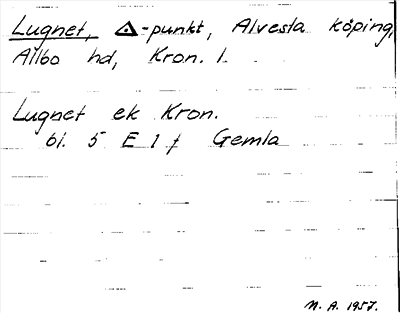 Lugnet, △-punkt, Alvesta köping,
Allbo hd, Kron. l.
Lugnet ek Kron.
bl. 5 E 1 f Gemla
N. A. 1957.